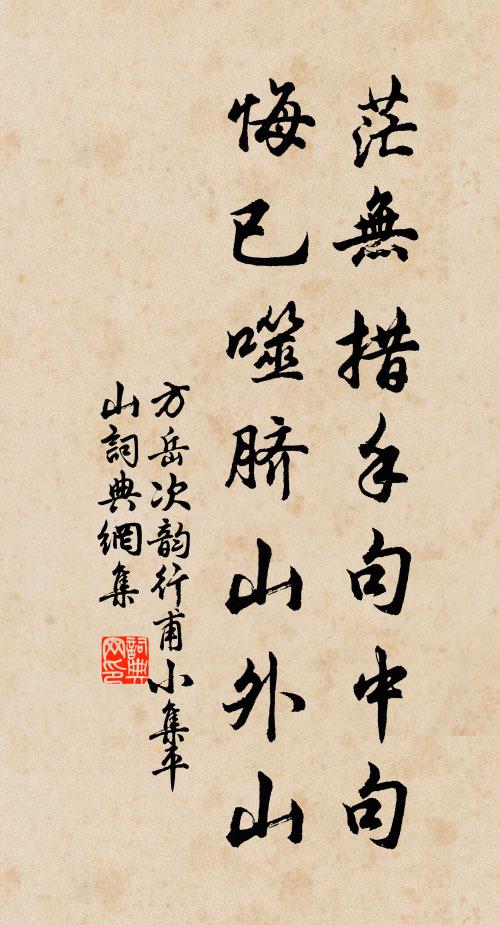 茫無措手句中句
悔已噬脐山外山
方岳次韵行甫小集平
山詞典網集
詞典
网印